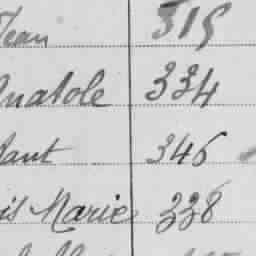 Jean 315
Anatole 334
346
is Marie 338